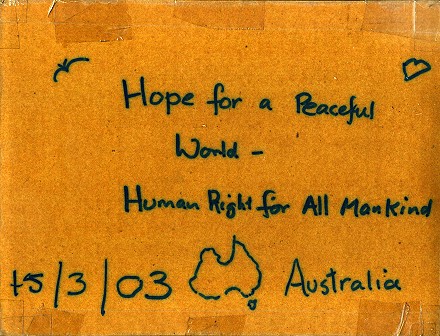 Hope for a Peaceful
World -
Human Right for All Mankind
15/3/03 Australia